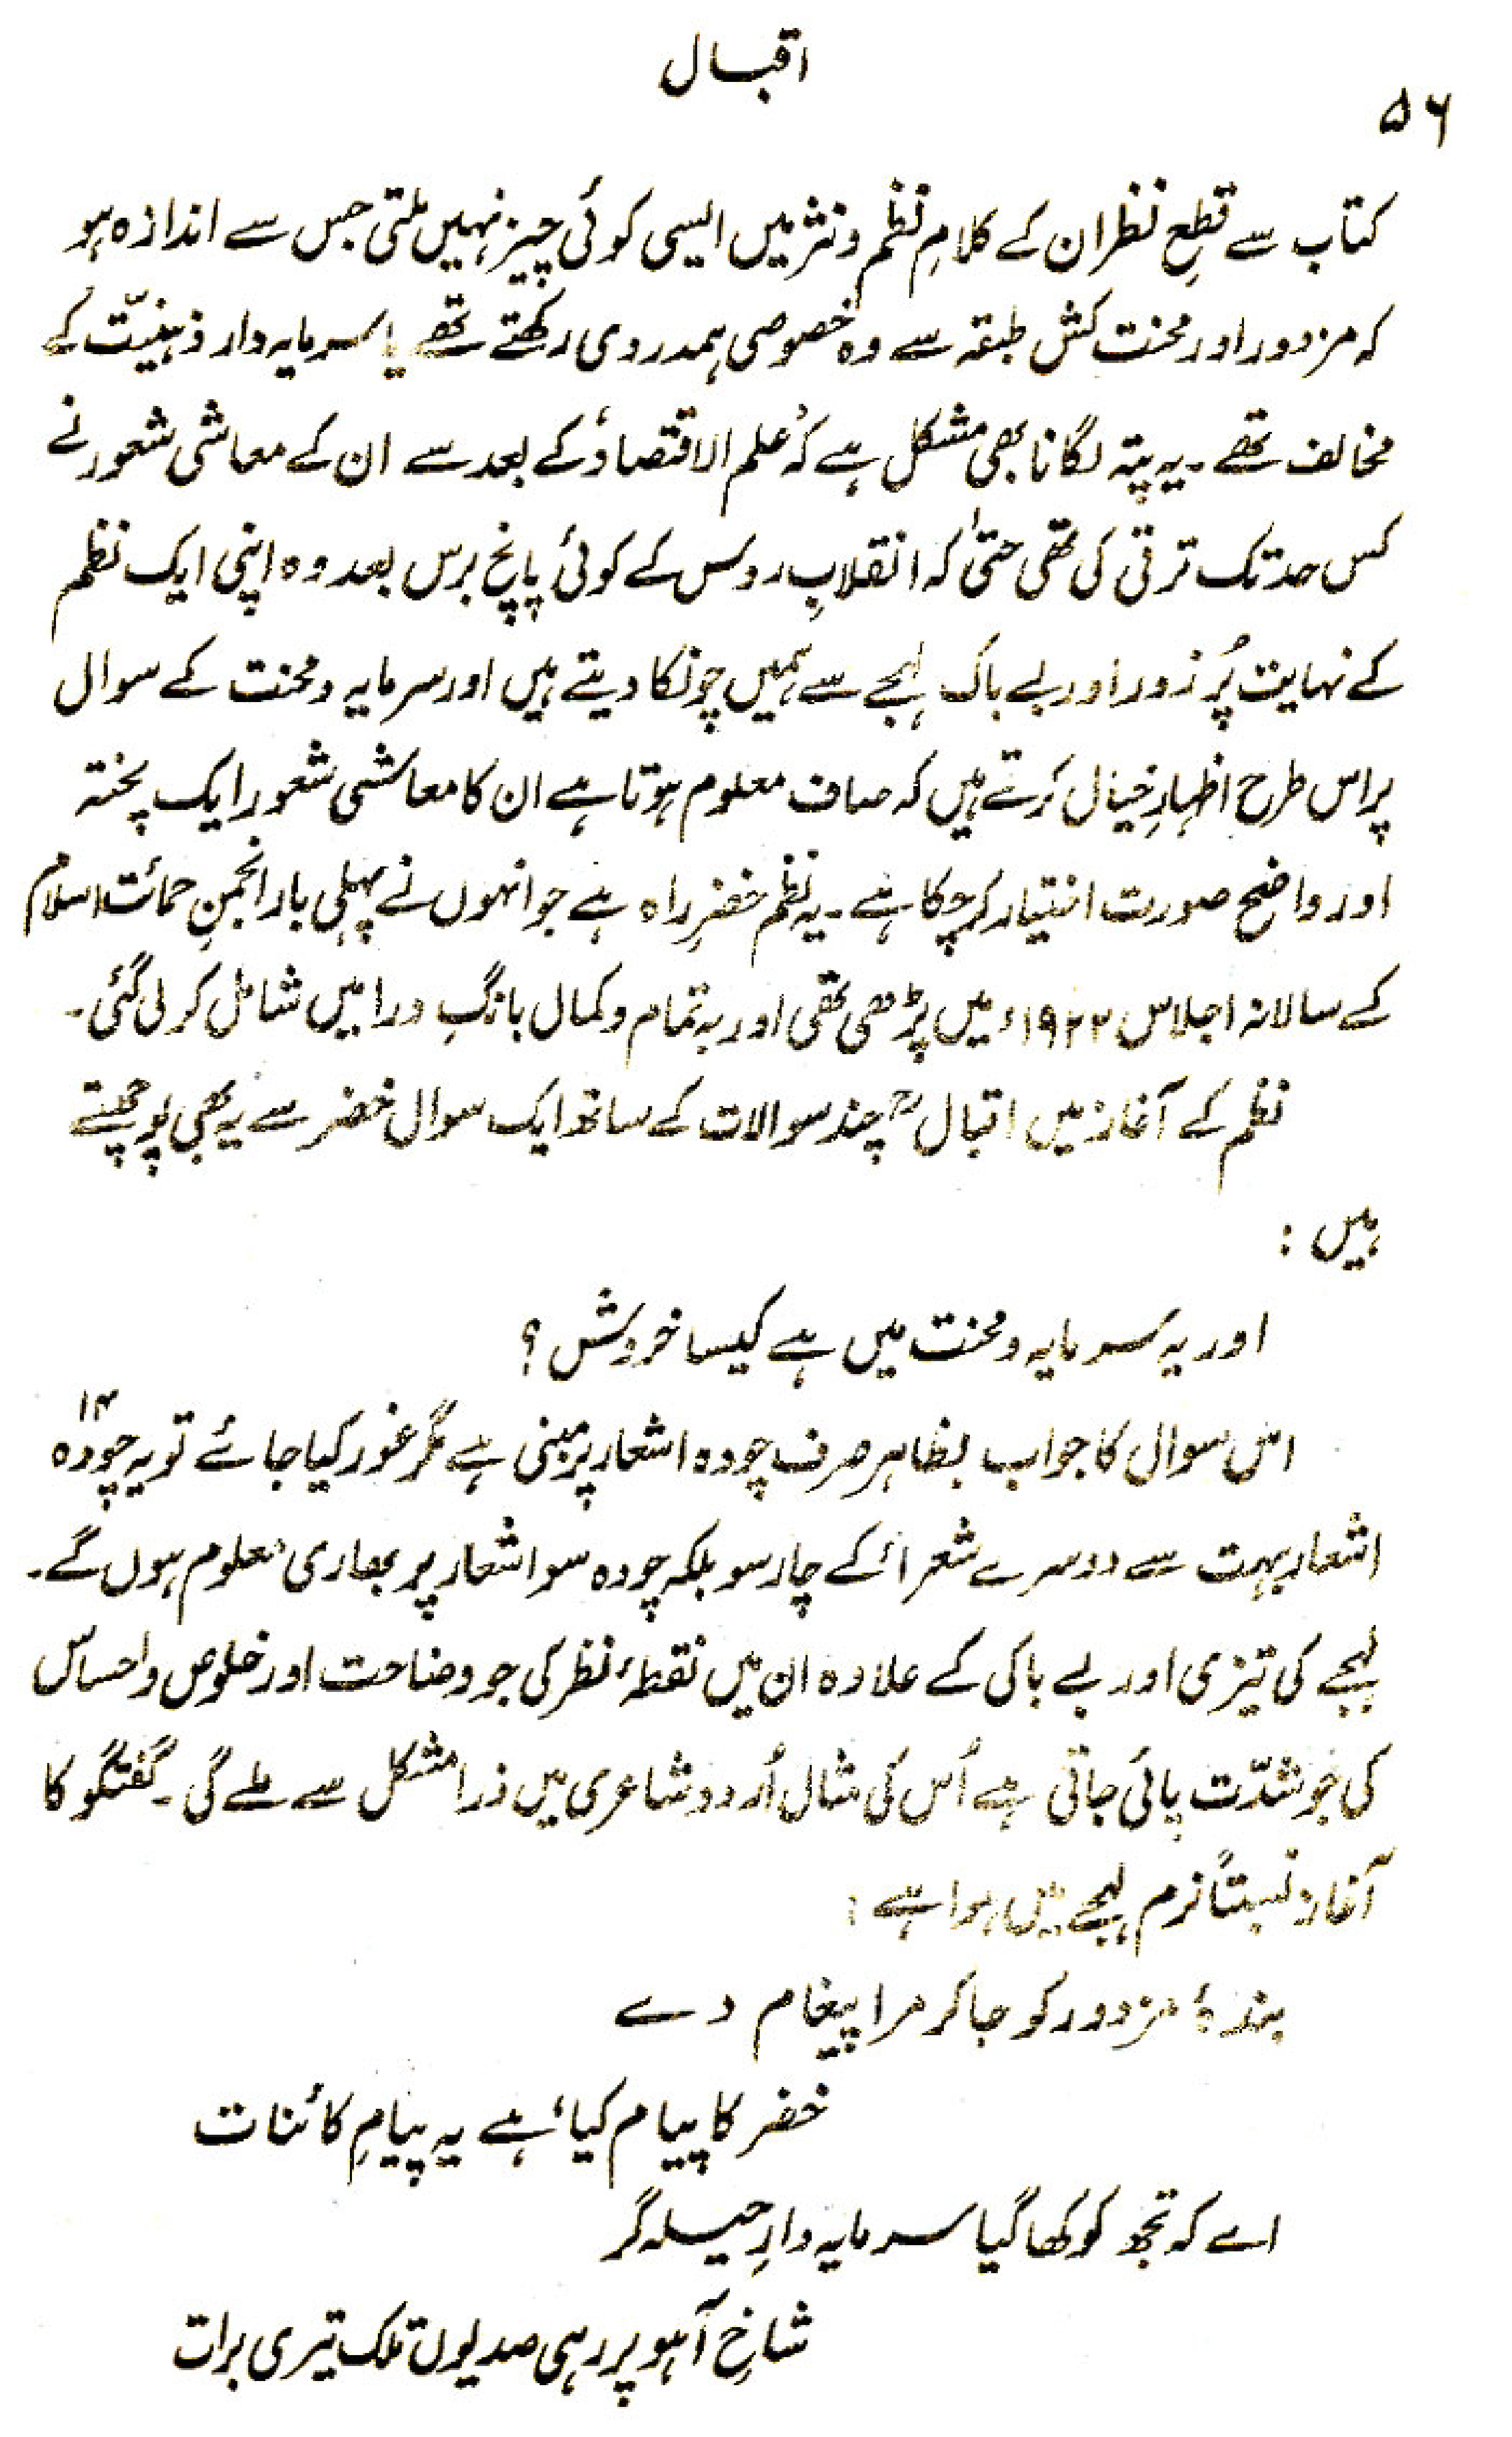 اقبال
۵۶
کتاب سے قطعِ نظر ان کے کلامِ نظم و نثر میں ایسی کوئی چیز نہیں ملتی جس سے اندازہ ہو
کہ مزدور اور محنت کش طبقہ سے وہ خصوصی ہمدردی رکھتے تھے یا سرمایہ دار ذہنیّت کے
مخالف تھے ۔ یہ پتہ لگانا بھی مشکل ہے کہ ’علم الاقتصاد‘ کے بعد سے ان کے معاشی شعور نے
کس حد تک ترقی کی تھی حتیٰ کہ انقلابِ روس کے کوئی پانچ برس بعد وہ اپنی ایک نظم
کے نہایت پُر زور اور بے باک لہجے سے ہمیں چونکا دیتے ہیں اور سرمایہ و محنت کے سوال
پر اس طرح اظہارِ خیال کرتے ہیں کہ صاف معلوم ہوتا ہے ان کا معاشی شعور ایک پختہ
اور واضح صورت اختیار کر چکا ہے ۔ یہ نظم خضرِ راہ ہے جو انہوں نے پہلی بار انجمنِ حمائت اسلام
کے سالانہ اجلاس ۱۹۲۲ء میں پڑھی تھی اور بہ تمام و کمال بانگِ درا میں شامل کر لی گئی ۔
نظم کے آغاز میں اقبالؒ چند سوالات کے ساتھ ایک سوال خضر سے یہ بھی پوچھتے
ہیں :
اور یہ سرمایہ و محنت میں ہے کیسا خروش ؟
اس سوال کا جواب بظاہر صرف چودہ اشعار پر مبنی ہے مگر غور کیا جائے تو یہ چودہ ۱۴
اشعار بہت سے دوسرے شعراء کے چار سو بلکہ چودہ سو اشعار پر بھاری معلوم ہوں گے ۔
لہجے کی تیزی اور بے باکی کے علاوہ ان میں نقطۂ نظر کی جو وضاحت اور خلوص و احساس
کی جو شدّت پائی جاتی ہے اُس کی مثال اُردو شاعری میں ذرا مشکل سے ملے گی ۔ گفتگو کا
آغاز نسبتاً نرم لہجے میں ہوا ہے :
بندۂ مزدور کو جا کر مرا پیغام دے
خضر کا پیام کیا، ہے یہ پیامِ کائنات
اے کہ تجھ کو کھا گیا سرمایہ دارِ حیلہ گر
شاخِ آہو پر رہی صدیوں تلک تیری برات